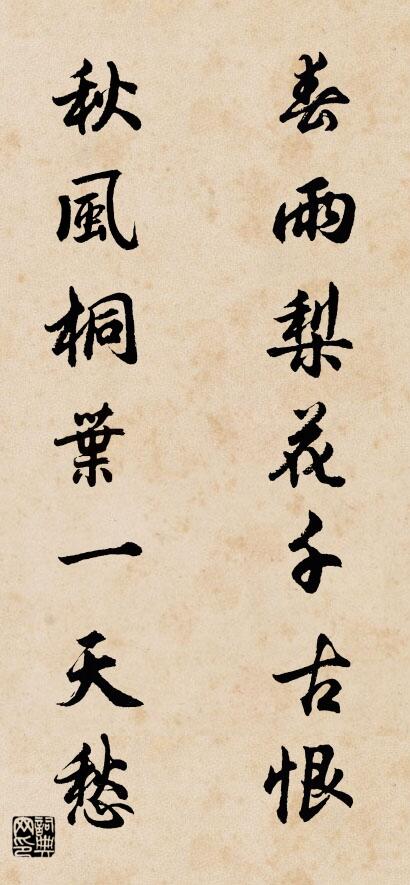 春雨梨花千古恨
秋風桐葉一天愁
詞典网印